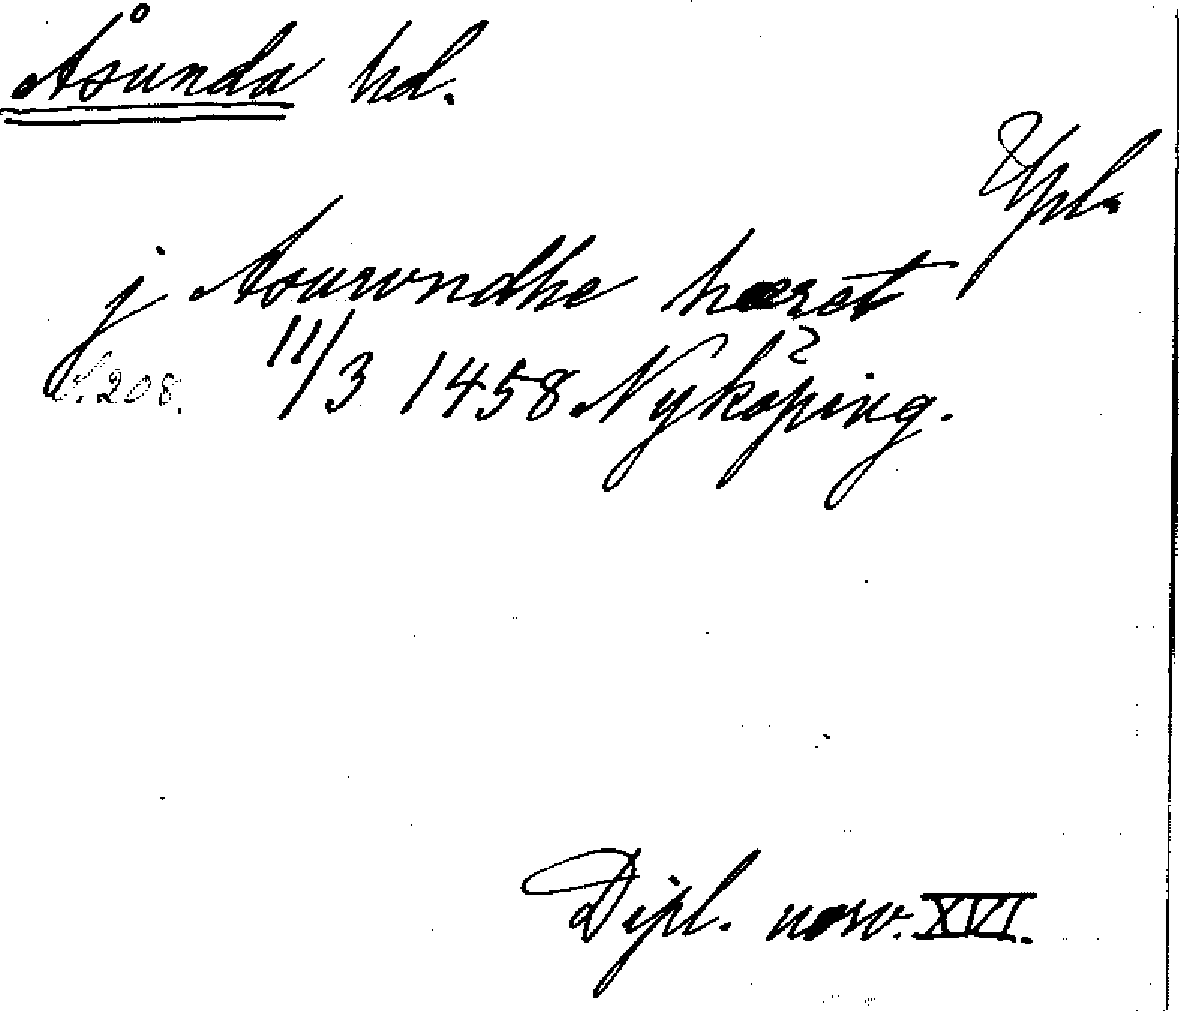 Åsunda hd.
Upl.
j Asurvndhe hæret
S. 208. 11/3 1458 Nyköping.
Dipl. norv. XVI.